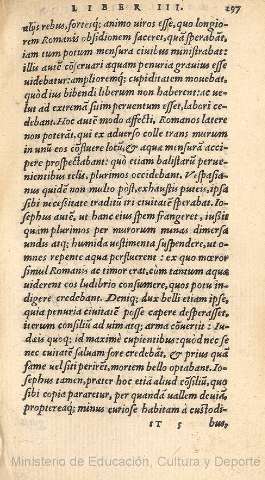 LIBER III. 297
alijs rebus, fortesq; animo uiros esse, quo longio-
rem Romanis obsidionem faceret, quã sperabãt,
iam tum potum mensura ciuibus ministrabat:
illis autẽ cõseruari aquam penuria grauius esse
uidebatur: ampliorẽmq; cupiditatem mouebat,
quòd ius bibendi liberum non haberent: ac ue-
lut ad extremã sitim peruentum esset, labori ce-
debant. Hoc autẽ modo affecti, Romanos latere
non poterãt, qui ex aduerso colle trans murum
in unũ eos cõfluere locũ, & aqua mensurã acci-
pere prospectabant: quò etiam balistarũ perue-
nientibus telis, plurimos occidebant. Vespasia-
nus quidẽ non multo pòst, exhaustis puteis, ipsa
sibi necessitate traditũ iri ciuitatẽ sperabat. Io-
sephus autẽ, ut hanc eius spem frangeret, iußit
quàm plurimos per murorum minas dimersa
undis atq; humida uestimenta suspendere, ut o-
mnes repente aqua perfluerent: ex quo mœror
simul Romanis ac timor erat, cùm tantùm aquæ
uiderent eos ludibrio consumere, quos potu in-
digere credebant. Deniq; dux belli etiam ipse,
quia penuria ciuitatẽ posse capere desperasset,
iterum consiliũ ad uim atq; arma cõuertit: Iu-
dæis quoq; id maximè cupientibus: quòd nec se
nec ciuitatẽ saluam fore credebãt, & prius quã
fame uel siti perirẽt, mortem bello optabant. Io-
sephus tamen, præter hoc etiã aliud cõsiliũ, quo
sibi copia pararetur, per quandã uallem deuiã,
proptereaq; minus curiose habitam à custodi-
IT 5 bus,
Ministerio de Educación, Cultura y Deporte